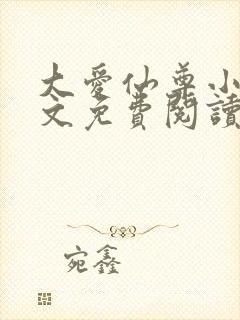 大愛仙尊小
文免費閱讀
宛鑫